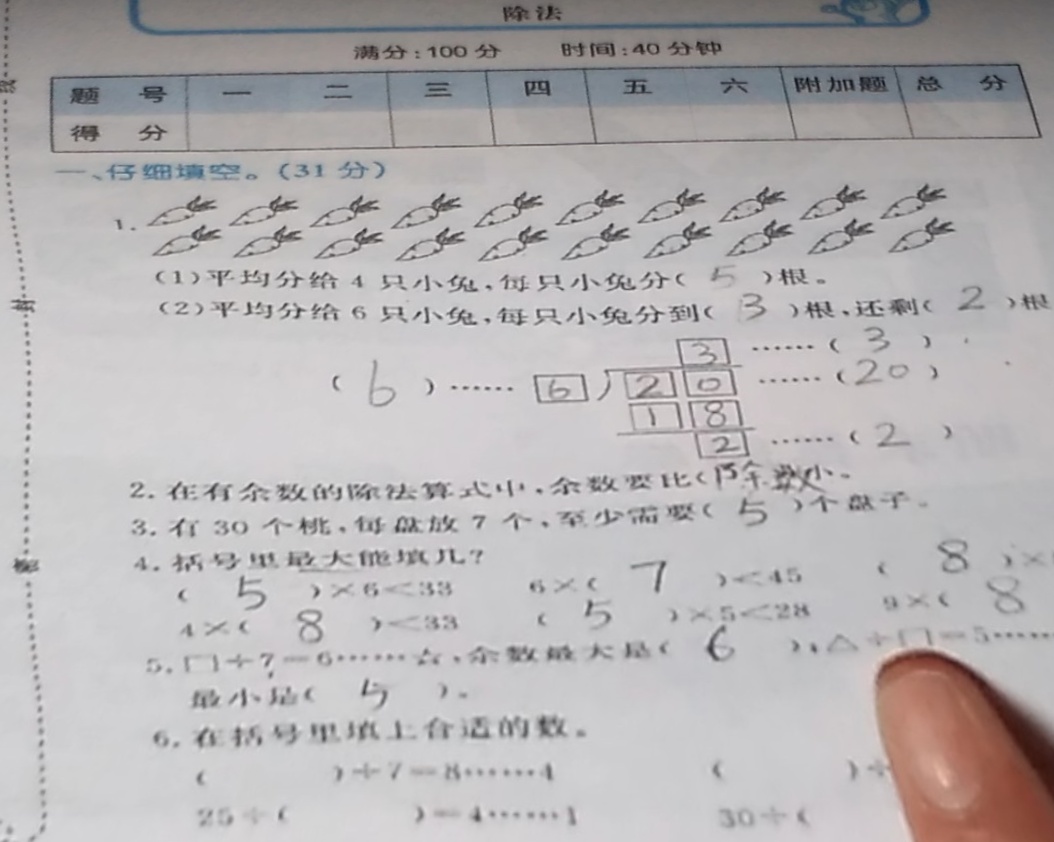 除法
满分:100分 时间:40分钟
题 号 一 二 三 四 五 六 附加题 总 分
得 分
一、仔细填空。(31分)
1.
(1)平均分给4只小兔,每只小兔分(5)根。
(2)平均分给6只小兔,每只小兔分到(3)根,还剩(2)根
3 ……(3)
(6)…… 6 ) 2 0 ……(20)
1 8
2 ……(2)
2.在有余数的除法算式中,余数要比(除数小。
3.有30个桃,每盘放7个,至少需要(5)个盘子。
4.括号里最大能填几?
(5)×6<33 6×(7)<45 (8)×
4×(8)<33 (5)×5<28 9×(8
5.□÷7=6……☆,余数最大是(6),△÷□=5……
最小是(5)。
6.在括号里填上合适的数。
( )÷7=8……4 ( )÷
25÷( )=4……1 30÷(